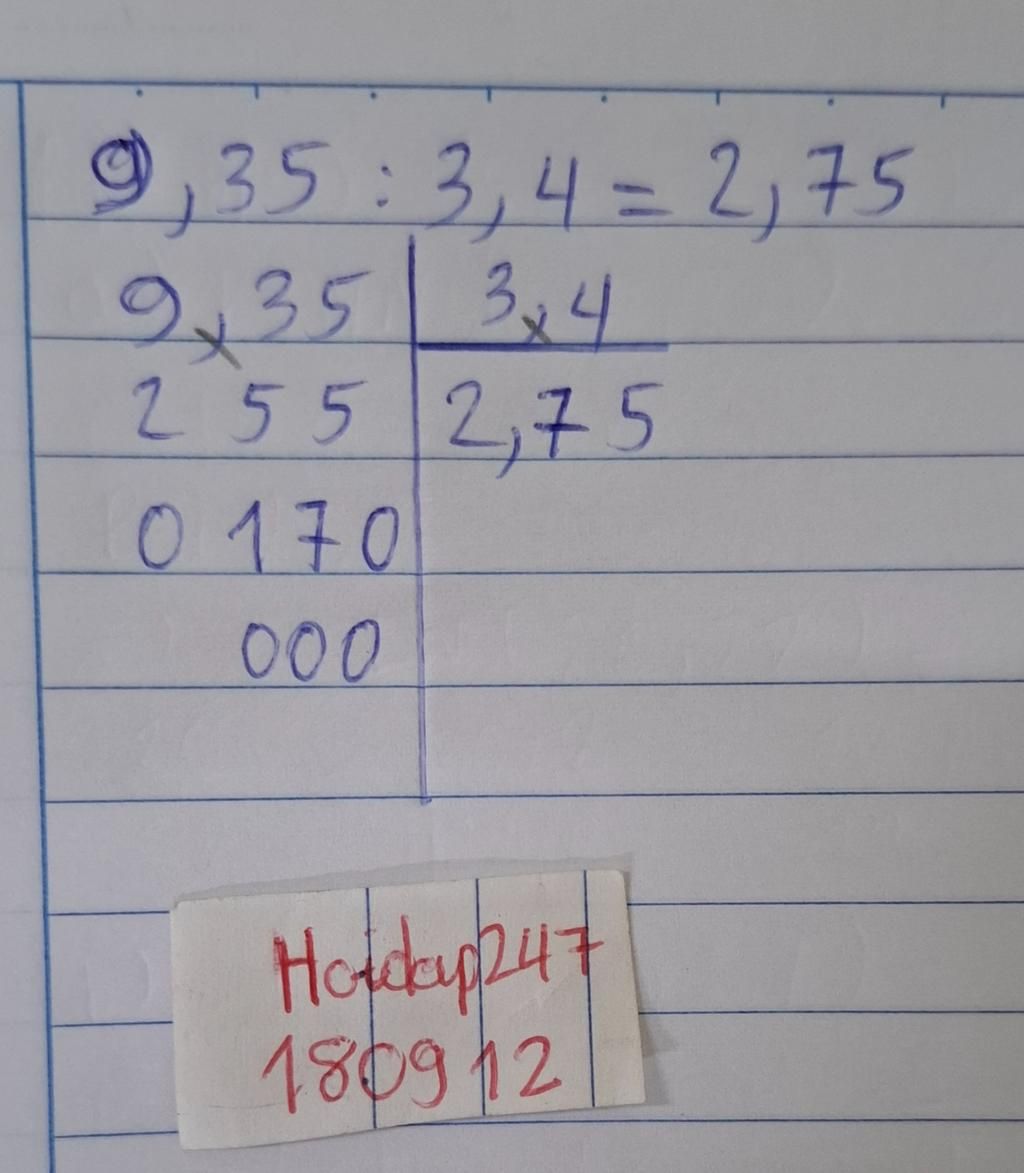 9,35 : 3,4 = 2,75
9,35 3,4
255 2,75
0170
000
Hoidap247
180912